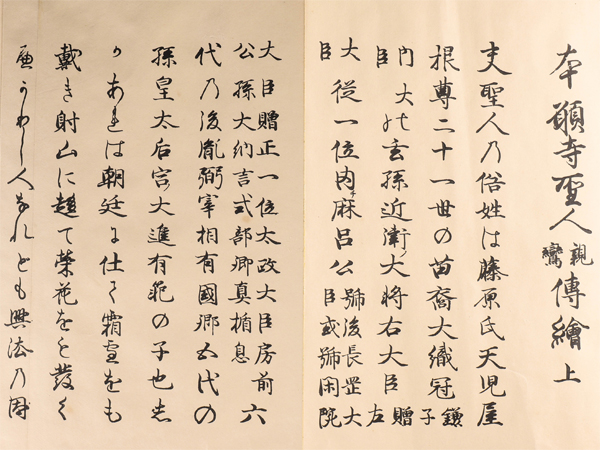 本願寺聖人親鸞傳繪上
夫聖人乃俗姓は藤原氏天児屋
根尊二十一世の苗裔大織冠鎌子
内大臣の玄孫近衛ノ大将右大臣贈左
大臣従一位内麻呂公號後長罡大臣或號閑院
大臣贈正一位太政大臣房前
公孫大納言式部卿真楯息六
代乃後胤弼宰相有國卿五代の
孫皇太后宮大進有範の子也志
かあれは朝廷に仕て霜雪をも
戴き射山に趨て榮花をも發く
へかりし人なれとも興法乃因